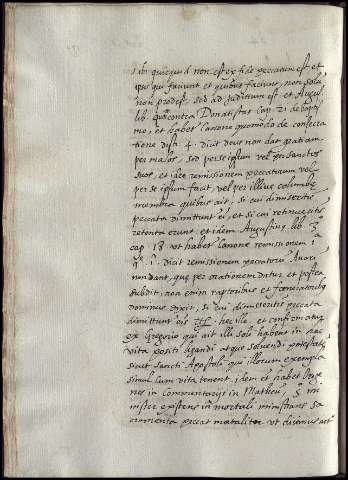 ib quicquid non est ex fide peccatum est et
ipsis qui faciunt et quibus faciunt, non solu
non prodest sed ad juditium est et Augus
lib contra Donatistas cap 21 de baptis
mo, et habet canone quomodo de consecra
tione dist 4. dicit deus non dat gratiam
per malos, sed per se ipsum vel per sanctos
suos, et ideo remissionem peccatorum vel
per se ipsum facit, vel per illius columbe
membra quibus ait, si cui dimisseritis
peccata dimittunt ei, et si cui retinueritis
retenta erunt et idem Augustinus lib 3
cap 18 vt habet Canone remissionem 1
q. 1. dicit remissionem peccatorum
mundant, que per orationem datur et postea
subdit, non enim raptoribus et feneratoribus
dominus dixit, si cui dimisseritis peccata
dimittunt eis et confirmatur
ex Gregorio qui ait illi soli habent in hac
vita positi ligandi atque solvendi potestatem
sicut sancti Apostoli qui illorum exempla
simul cum vita tenent. idem et habet Orige
nes in commentarijs in Matheu, mi
nister existens in mortali ministrans sa
cramenta peccat mortaliter vt diximus art